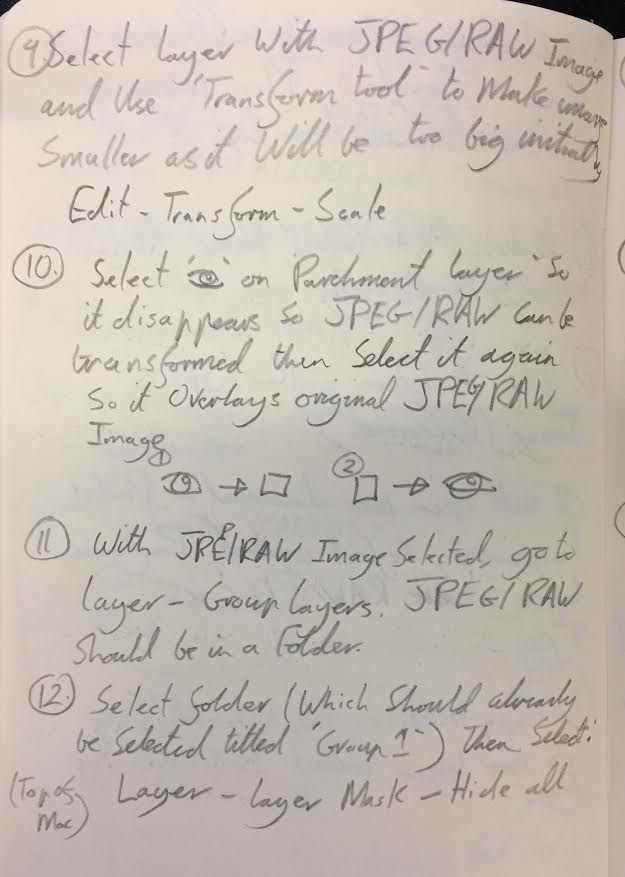 9. Select Layer With JPEG/RAW Image
and Use 'Transform tool' to Make image
Smaller as it Will be too big initially
Edit - Transform - Scale
10. Select '👁' on Parchment layer so
it disappears so JPEG/RAW can be
transformed then Select it again
So it Overlays original JPEG/RAW
Image
① → ② →
11 With JPEP/RAW Image Selected, go to
Layer - Group Layers. JPEG/RAW
Should be in a folder.
12. Select folder (Which Should already
be Selected titled 'Group 1') Then Select:
(Top of Mac) Layer - Layer Mask - Hide all